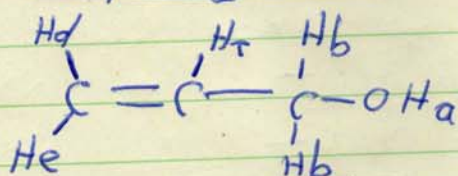 Hd Hc Hb
C = C — C — O Ha
He Hb